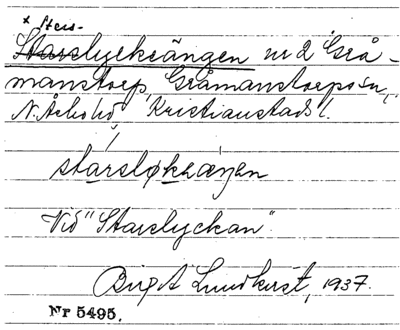 × Sters-
Starslyckeängen nr 2 Grå-
manstorp, Gråmanstorps sn,
N. Åsbo hd Kristianstads l.
stársløkkæŋen
Vid "Starslyckan".
Birgit Lundkvist, 1937.
Nr 5495.